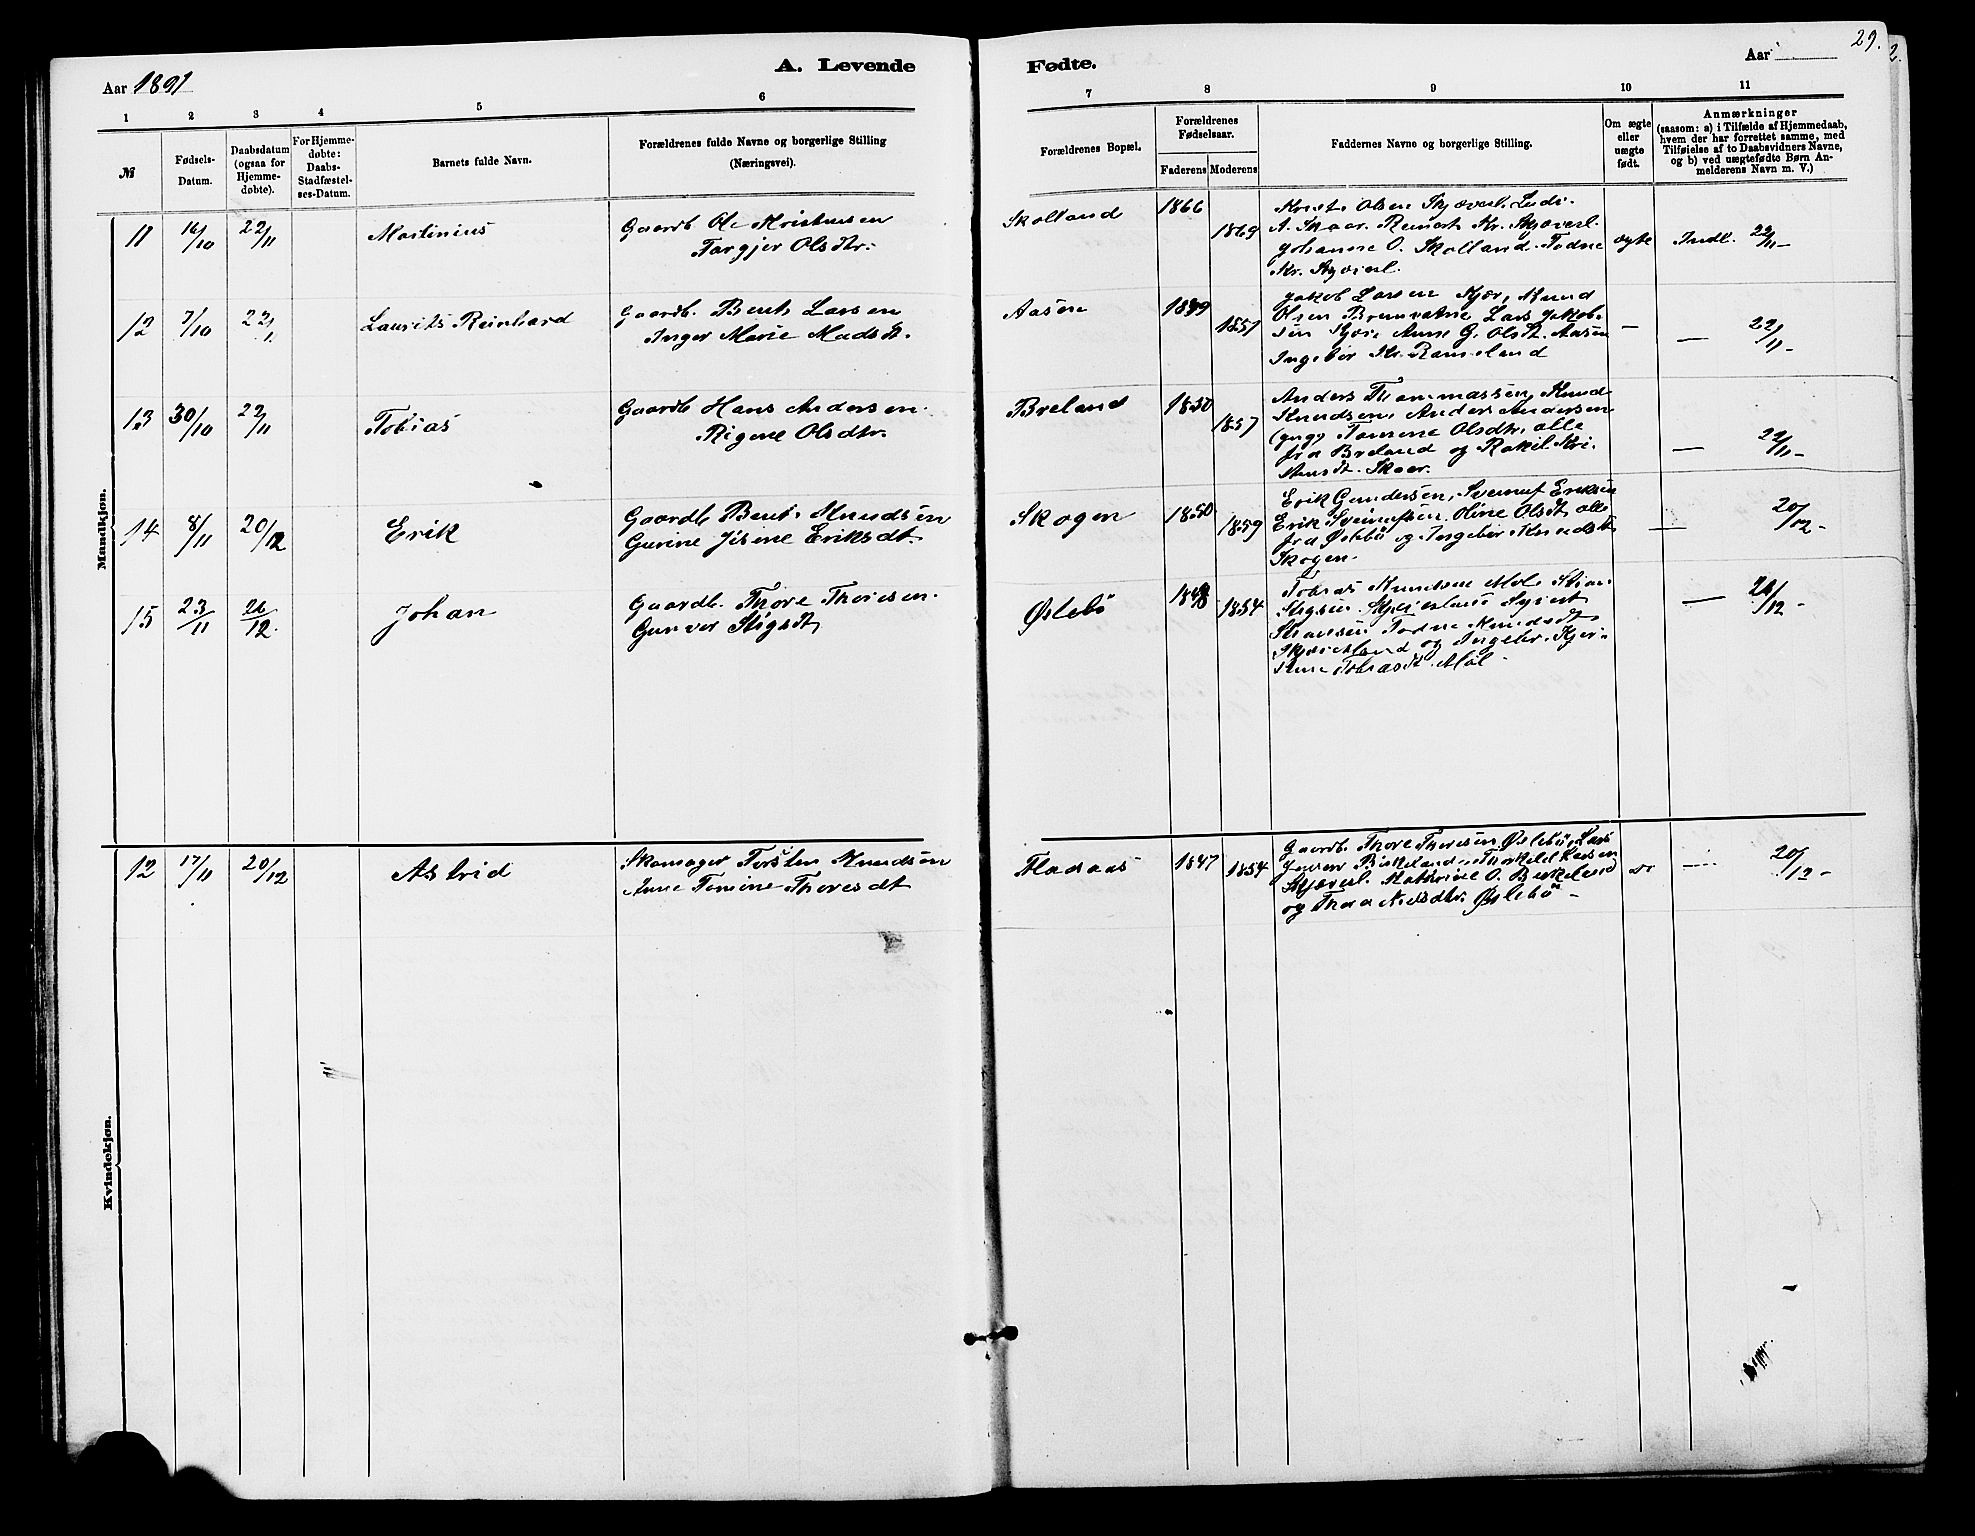 29.
Aar 1891
A. Levende
Fødte.
Aar
1 2 3 4 5 6 7 8 9 10 11
№
Fødsels-
Datum.
Daabsdatum
(ogsaa for
Hjemme-
døbte).
For Hjemme-
døbte:
Daabs-
Stadfæstel-
ses-Datum.
Barnets fulde Navn.
Forældrenes fulde Navne og borgerlige Stilling
(Næringsvei).
Forældrenes Bopæl.
Forældrenes
Fødselsaar.
Faderens Moderens
Faddernes Navne og borgerlige Stilling.
Om ægte
eller
uægte
født.
Anmærkninger
(saasom: a) i Tilfælde af Hjemmedaab,
hvem der har forrettet samme, med
Tilføielse af to Daabsvidners Navne,
og b) ved uægtefødte Børn An-
melderens Navn m. V.)
Mandkjøn.
11 16/10 22/11 Martinius
Gaardb Ole Kristensen
Targjer Olsdtr.
Skolland 1866 1869
Olsen Skjæversl.
A. Skaar. Reinert Kr. Skjæversl.
Johanne O. Skolland. Todne
Kr. Skjæversl.
ægte Indl. 22/11 -
12 7/10 22/11 Laurits Reinhard
Gaardb. Bent Larsen
Inger Marie Madsdt.
Aasen 1849 1851
Jakob Larsen Kjær, Knud
Olsen Brunvatne Lars Jakob-
sen Kjær, Anne G. Olsdt. Aasen
Ingebor Kr. Ramsland
— — 22/11 -
13 30/10 22/11 Tobias
Gaardb Hans Andersen.
Rigene Olsdtr.
Breland 1850 1857
Anders Thommassen, Knud
Knudsen, Anders Andersen
(yngr) Tomene Olsdtr. alle
fra Breland og Rakel Kri-
stensdt. Skaar.
— 22/11 -
14 8/11 20/12 Erik
Gaardb Bent Knudsen
Gurine Jisene Eriksdt.
Skogen 1850 1859
Erik Gundersen, Svenuf Eriksen
Erik Svenufsen. Oline Olsdt alle
fra Øslebö og Ingebor Knudsdt
Skogen.
— 20/12 -
15 23/11 26/12 Johan
Gaardb. Thore Thoresen.
Gunver Stigsdt
Øslebö 1848 1854
Tobias Knudsen Möl. Stian
Stigsen Skjævesland Syvert
Todne Knudsdt
Skjævesland og Ingebor. Kjer-
stine Tobiasdt. Möl.
— 26/12 -
Kvindekjøn.
12 17/11 20/12 Astrid
Skomager Torsten Knudsen
Anne Tomine Thoresdt
Fladaas 1847 1854
Gaardb Thore Thoresen Øslebö, Lars
Jensen Birkeland, Thorkild Larsen
Skjæversl. Kathrine O. Birkeland
og Thora Nilsdtr. Øslebö -
do — 20/12 -